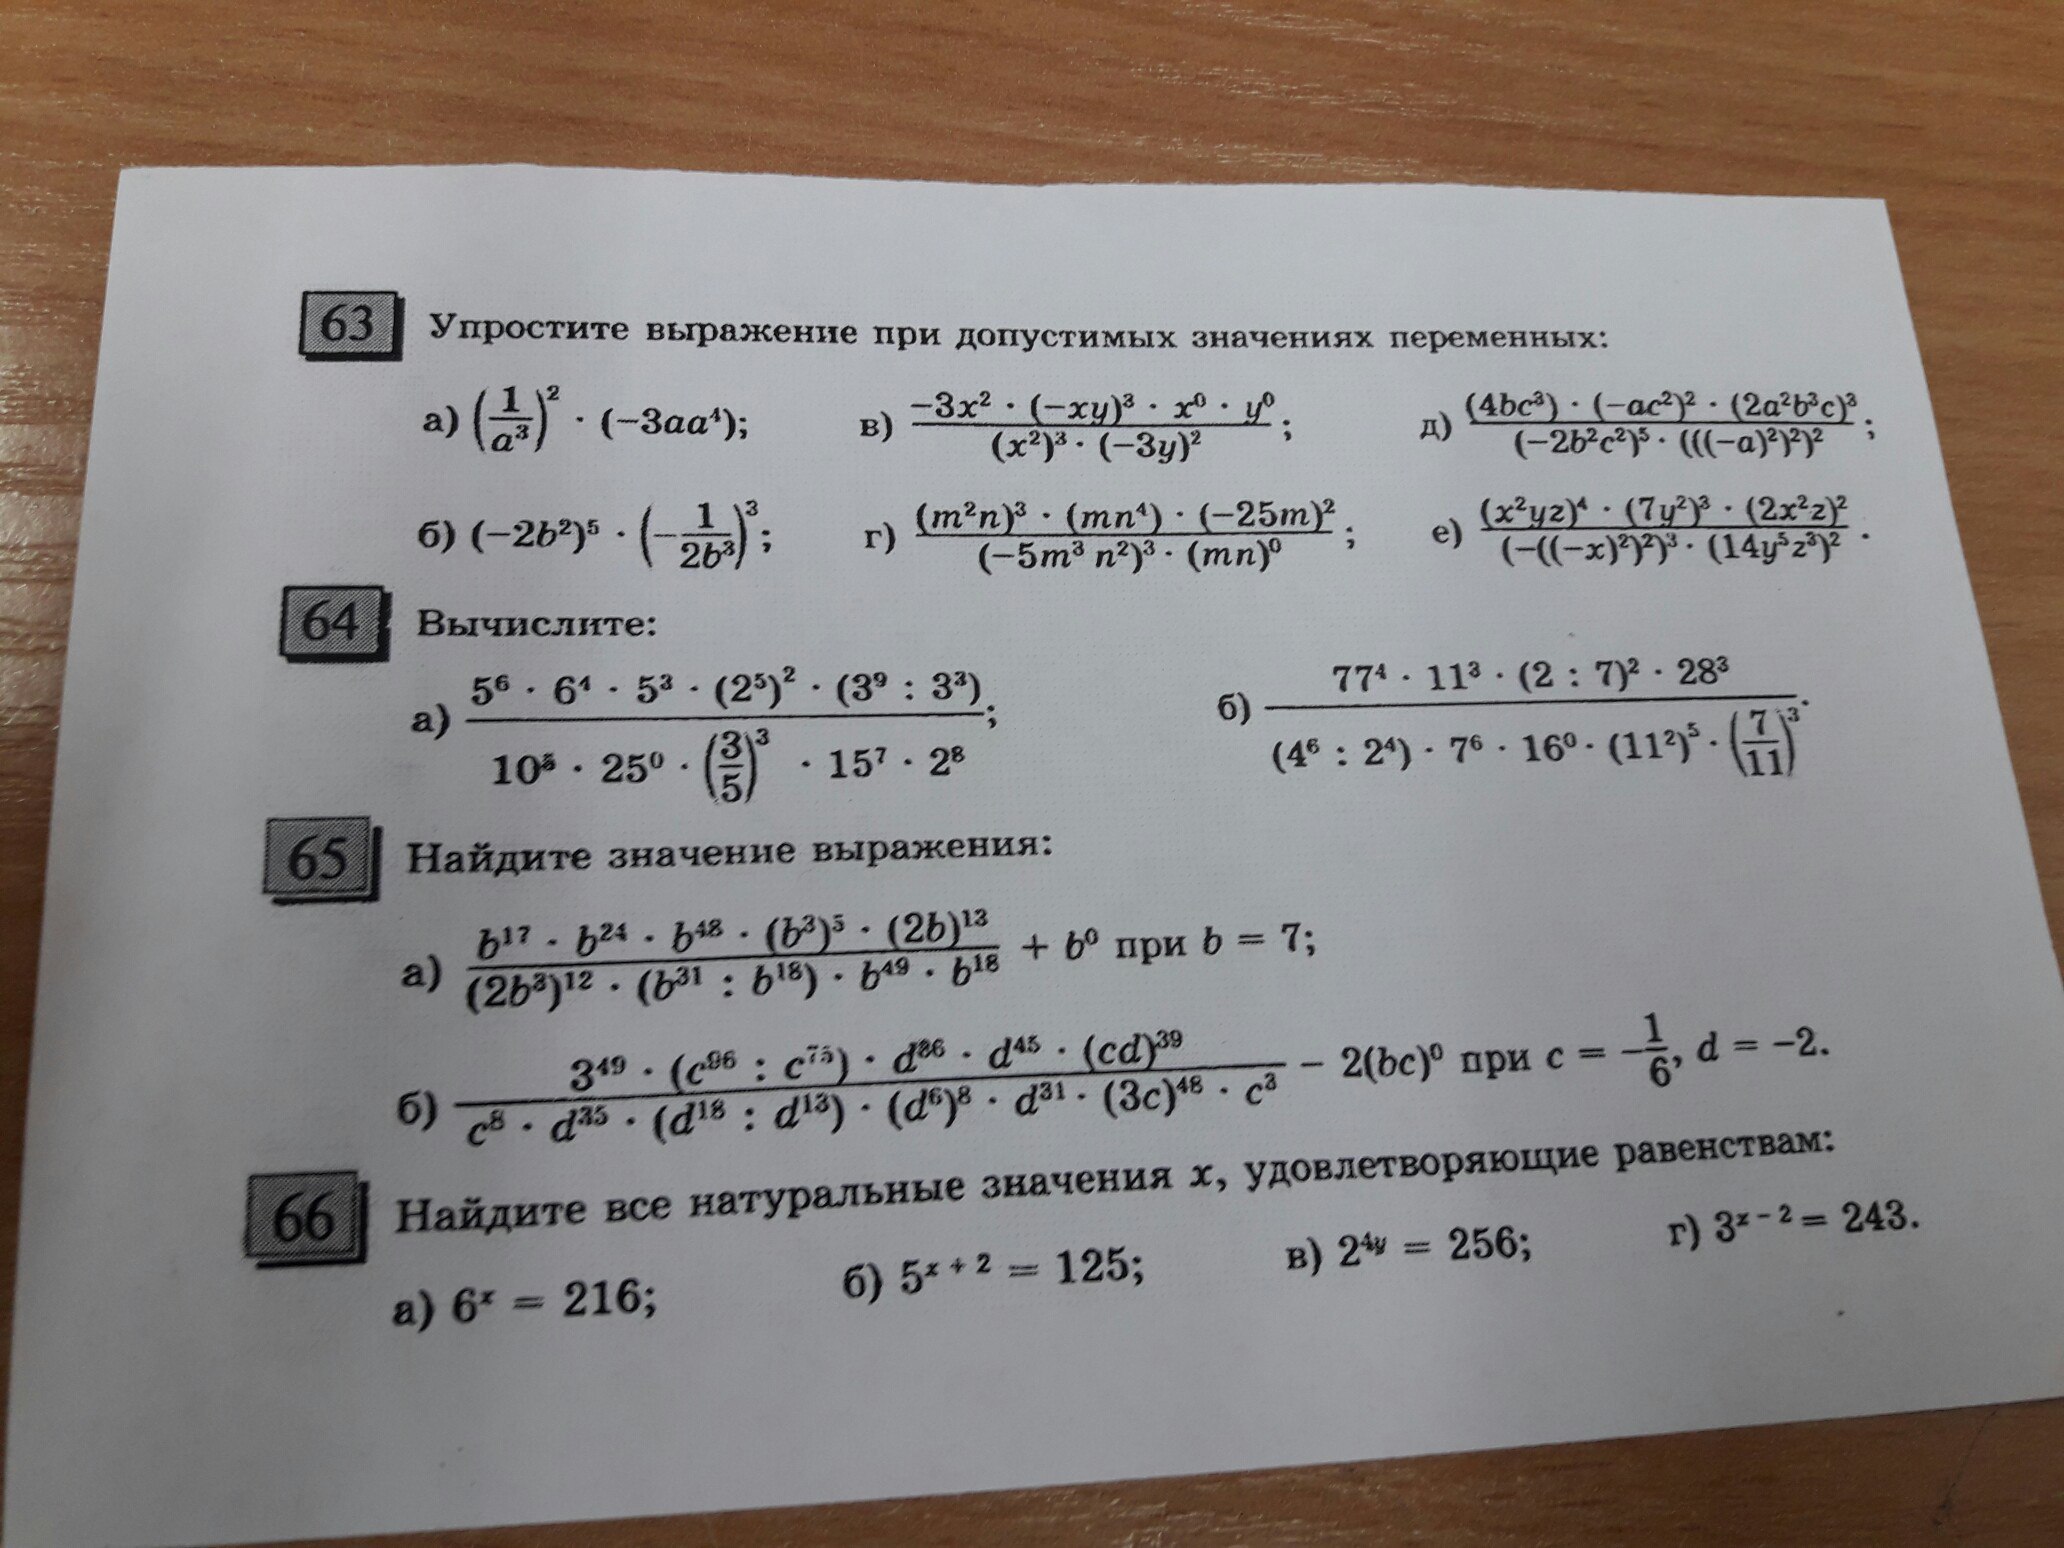 63 Упростите выражение при допустимых значениях переменных:
а) (1/a³)² · (−3aa⁴); в) (−3x² · (−xy)³ · x⁰ · y⁰)/((x²)³ · (−3y)²); д) ((4bc³) · (−ac²)² · (2a²b³c)³)/((−2b²c²)⁵ · (((−a)²)²)²);
б) (−2b²)⁵ · (−1/2b³)³; г) ((m²n)³ · (mn⁴) · (−25m)²)/((−5m³ n²)³ · (mn)⁰); е) ((x²yz)⁴ · (7y²)³ · (2x²z)²)/((−((−x)²)²)³ · (14y⁵z³)²).
64 Вычислите:
а) (5⁶ · 6⁴ · 5³ · (2⁵)² · (3⁹ : 3³))/(10⁵ · 25⁰ · (3/5)³ · 15⁷ · 2⁸); б) (77⁴ · 11³ · (2 : 7)² · 28³)/((4⁶ : 2⁴) · 7⁶ · 16⁰ · (11²)⁵ · (7/11)³).
65 Найдите значение выражения:
а) (b¹⁷ · b²⁴ · b⁴⁸ · (b³)⁵ · (2b)¹³)/((2b³)¹² · (b³¹ : b¹⁸) · b⁴⁹ · b¹⁸) + b⁰ при b = 7;
б) (3⁴⁹ · (c⁹⁶ : c⁷⁵) · d³⁶ · d⁴⁵ · (cd)³⁹)/(c⁸ · d³⁵ · (d¹⁸ : d¹³) · (d⁶)⁸ · d³¹ · (3c)⁴⁸ · c³) − 2(bc)⁰ при c = −1/6, d = −2.
66 Найдите все натуральные значения x, удовлетворяющие равенствам:
а) 6ˣ = 216; б) 5ˣ ⁺ ² = 125; в) 2⁴ʸ = 256; г) 3ˣ ⁻ ² = 243.